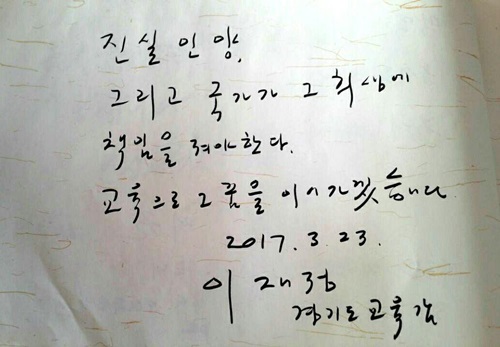 진실인양,
그리고 국가가 그 희생에
책임을 져야한다.
교육으로 그 꿈을 이어가겠습니다
2017. 3. 23.
이재정
경기도교육감